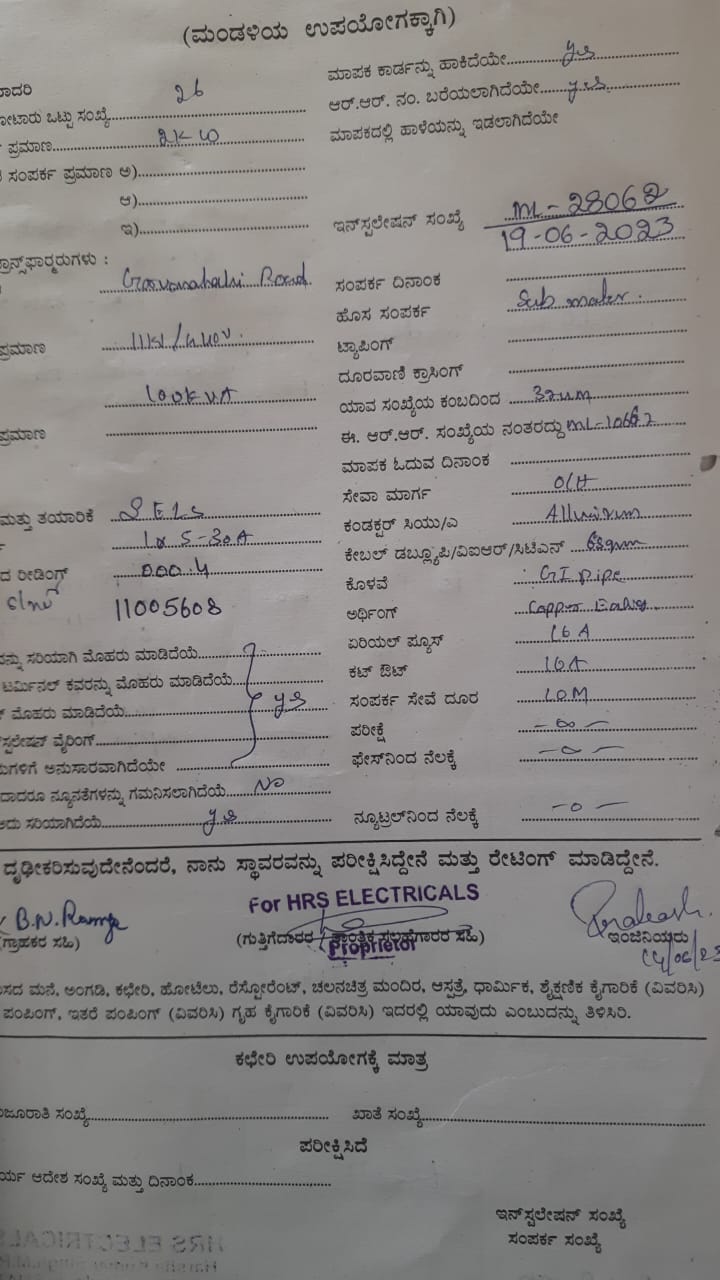 (ಮಂಡಳಿಯ ಉಪಯೋಗಕ್ಕಾಗಿ)
ಮಾಪಕ ಕಾರ್ಡನ್ನು ಹಾಕಿದೆಯೇ yes
ಾದರಿ
ೋಟಾರು ಒಟ್ಟು ಸಂಖ್ಯೆ 26
ಆರ್.ಆರ್. ನಂ. ಬರೆಯಲಾಗಿದೆಯೇ yes
ಪ್ರಮಾಣ
ಮಾಪಕದಲ್ಲಿ ಹಾಳೆಯನ್ನು ಇಡಲಾಗಿದೆಯೇ
ಸಂಪರ್ಕ ಪ್ರಮಾಣ ಅ)
ಆ)
ಇ)
ಇನ್‌ಸ್ಪಲೇಷನ್ ಸಂಖ್ಯೆ ML-28062
19-06-2023
ರಾನ್ಸ್‌ಫಾರ್ಮರುಗಳು :
Road
ಸಂಪರ್ಕ ದಿನಾಂಕ
ಹೊಸ ಸಂಪರ್ಕ Sub meter
ಪ್ರಮಾಣ
ಟ್ಯಾಪಿಂಗ್
ದೂರವಾಣಿ ಕ್ರಾಸಿಂಗ್
100KVA
ಯಾವ ಸಂಖ್ಯೆಯ ಕಂಬದಿಂದ
ಪ್ರಮಾಣ
ಈ. ಆರ್.ಆರ್. ಸಂಖ್ಯೆಯ ನಂತರದ್ದು
ಮಾಪಕ ಓದುವ ದಿನಾಂಕ
ಮತ್ತು ತಯಾರಿಕೆ
ಸೇವಾ ಮಾರ್ಗ O/H
5-30A
ಕಂಡಕ್ಟರ್ ಸಿಯು/ಎ
ದ ರೀಡಿಂಗ್ 000.4
ಕೇಬಲ್ ಡಬ್ಲ್ಯೂಪಿ/ವಿಐಆರ್/ಸಿಟಿಎನ್
ಕೊಳವೆ GI pipe
11005608
ಅರ್ಥಿಂಗ್ Copper
ಏರಿಯಲ್ ಫ್ಯೂಸ್ 16A
ನ್ನು ಸರಿಯಾಗಿ ಮೊಹರು ಮಾಡಿದೆಯೆ
ಕಟ್ ಔಟ್ 16A
ಟರ್ಮಿನಲ್ ಕವರನ್ನು ಮೊಹರು ಮಾಡಿದೆಯೆ
ಸಂಪರ್ಕ ಸೇವೆ ದೂರ 10M
ಮೊಹರು ಮಾಡಿದೆಯೆ yes
ಪರೀಕ್ಷೆ
ಸ್ಪಲೇಷನ್ ವೈರಿಂಗ್
ಫೇಸ್‌ನಿಂದ ನೆಲಕ್ಕೆ
ಗಳಿಗೆ ಅನುಸಾರವಾಗಿದೆಯೇ
ದಾದರೂ ನ್ಯೂನತೆಗಳನ್ನು ಗಮನಿಸಲಾಗಿದೆಯೆ No
ಸರಿಯಾಗಿದೆಯೆ yes
ನ್ಯೂಟ್ರಲ್‌ನಿಂದ ನೆಲಕ್ಕೆ -0-
ದೃಢೀಕರಿಸುವುದೇನೆಂದರೆ, ನಾನು ಸ್ಥಾವರವನ್ನು ಪರೀಕ್ಷಿಸಿದ್ದೇನೆ ಮತ್ತು ರೇಟಿಂಗ್ ಮಾಡಿದ್ದೇನೆ.
For HRS ELECTRICALS
B.N.
(ಗ್ರಾಹಕರ ಸಹಿ)
(ಗುತ್ತಿಗೆದಾರರ / ತಾಂತ್ರಿಕ ಸಲಹೆಗಾರರ ಸಹಿ)
ಇಂಜಿನಿಯರು
Proprietor
ಸದ ಮನೆ, ಅಂಗಡಿ, ಕಛೇರಿ, ಹೋಟೆಲು, ರೆಸ್ಟೋರೆಂಟ್, ಚಲನಚಿತ್ರ ಮಂದಿರ, ಆಸ್ಪತ್ರೆ, ಧಾರ್ಮಿಕ, ಶೈಕ್ಷಣಿಕ ಕೈಗಾರಿಕೆ (ವಿವರಿಸಿ)
ಪಂಪಿಂಗ್, ಇತರೆ ಪಂಪಿಂಗ್ (ವಿವರಿಸಿ) ಗೃಹ ಕೈಗಾರಿಕೆ (ವಿವರಿಸಿ) ಇದರಲ್ಲಿ ಯಾವುದು ಎಂಬುದನ್ನು ತಿಳಿಸಿರಿ.
ಕಛೇರಿ ಉಪಯೋಗಕ್ಕೆ ಮಾತ್ರ
ಜೂರಾತಿ ಸಂಖ್ಯೆ
ಖಾತೆ ಸಂಖ್ಯೆ
ಪರೀಕ್ಷಿಸಿದೆ
ರ್ಯ ಆದೇಶ ಸಂಖ್ಯೆ ಮತ್ತು ದಿನಾಂಕ
ಇನ್‌ಸ್ಪಲೇಷನ್ ಸಂಖ್ಯೆ
ಸಂಪರ್ಕ ಸಂಖ್ಯೆ